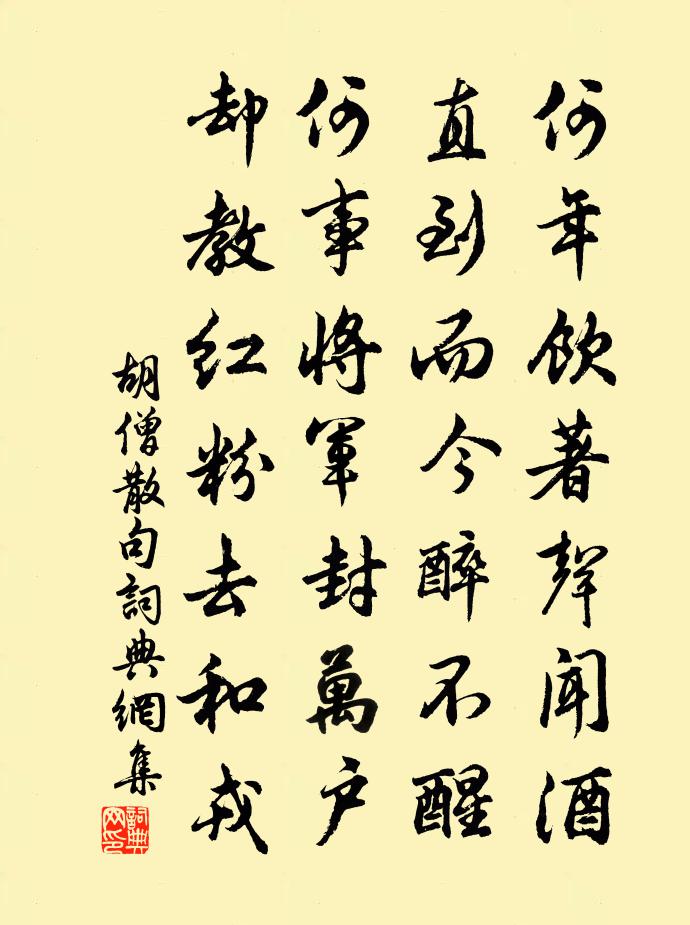 何年飲著聲聞酒
直到而今醉不醒
何事將軍封萬戶
却教紅粉去和戎
胡僧散句詞典網集
詞典網印